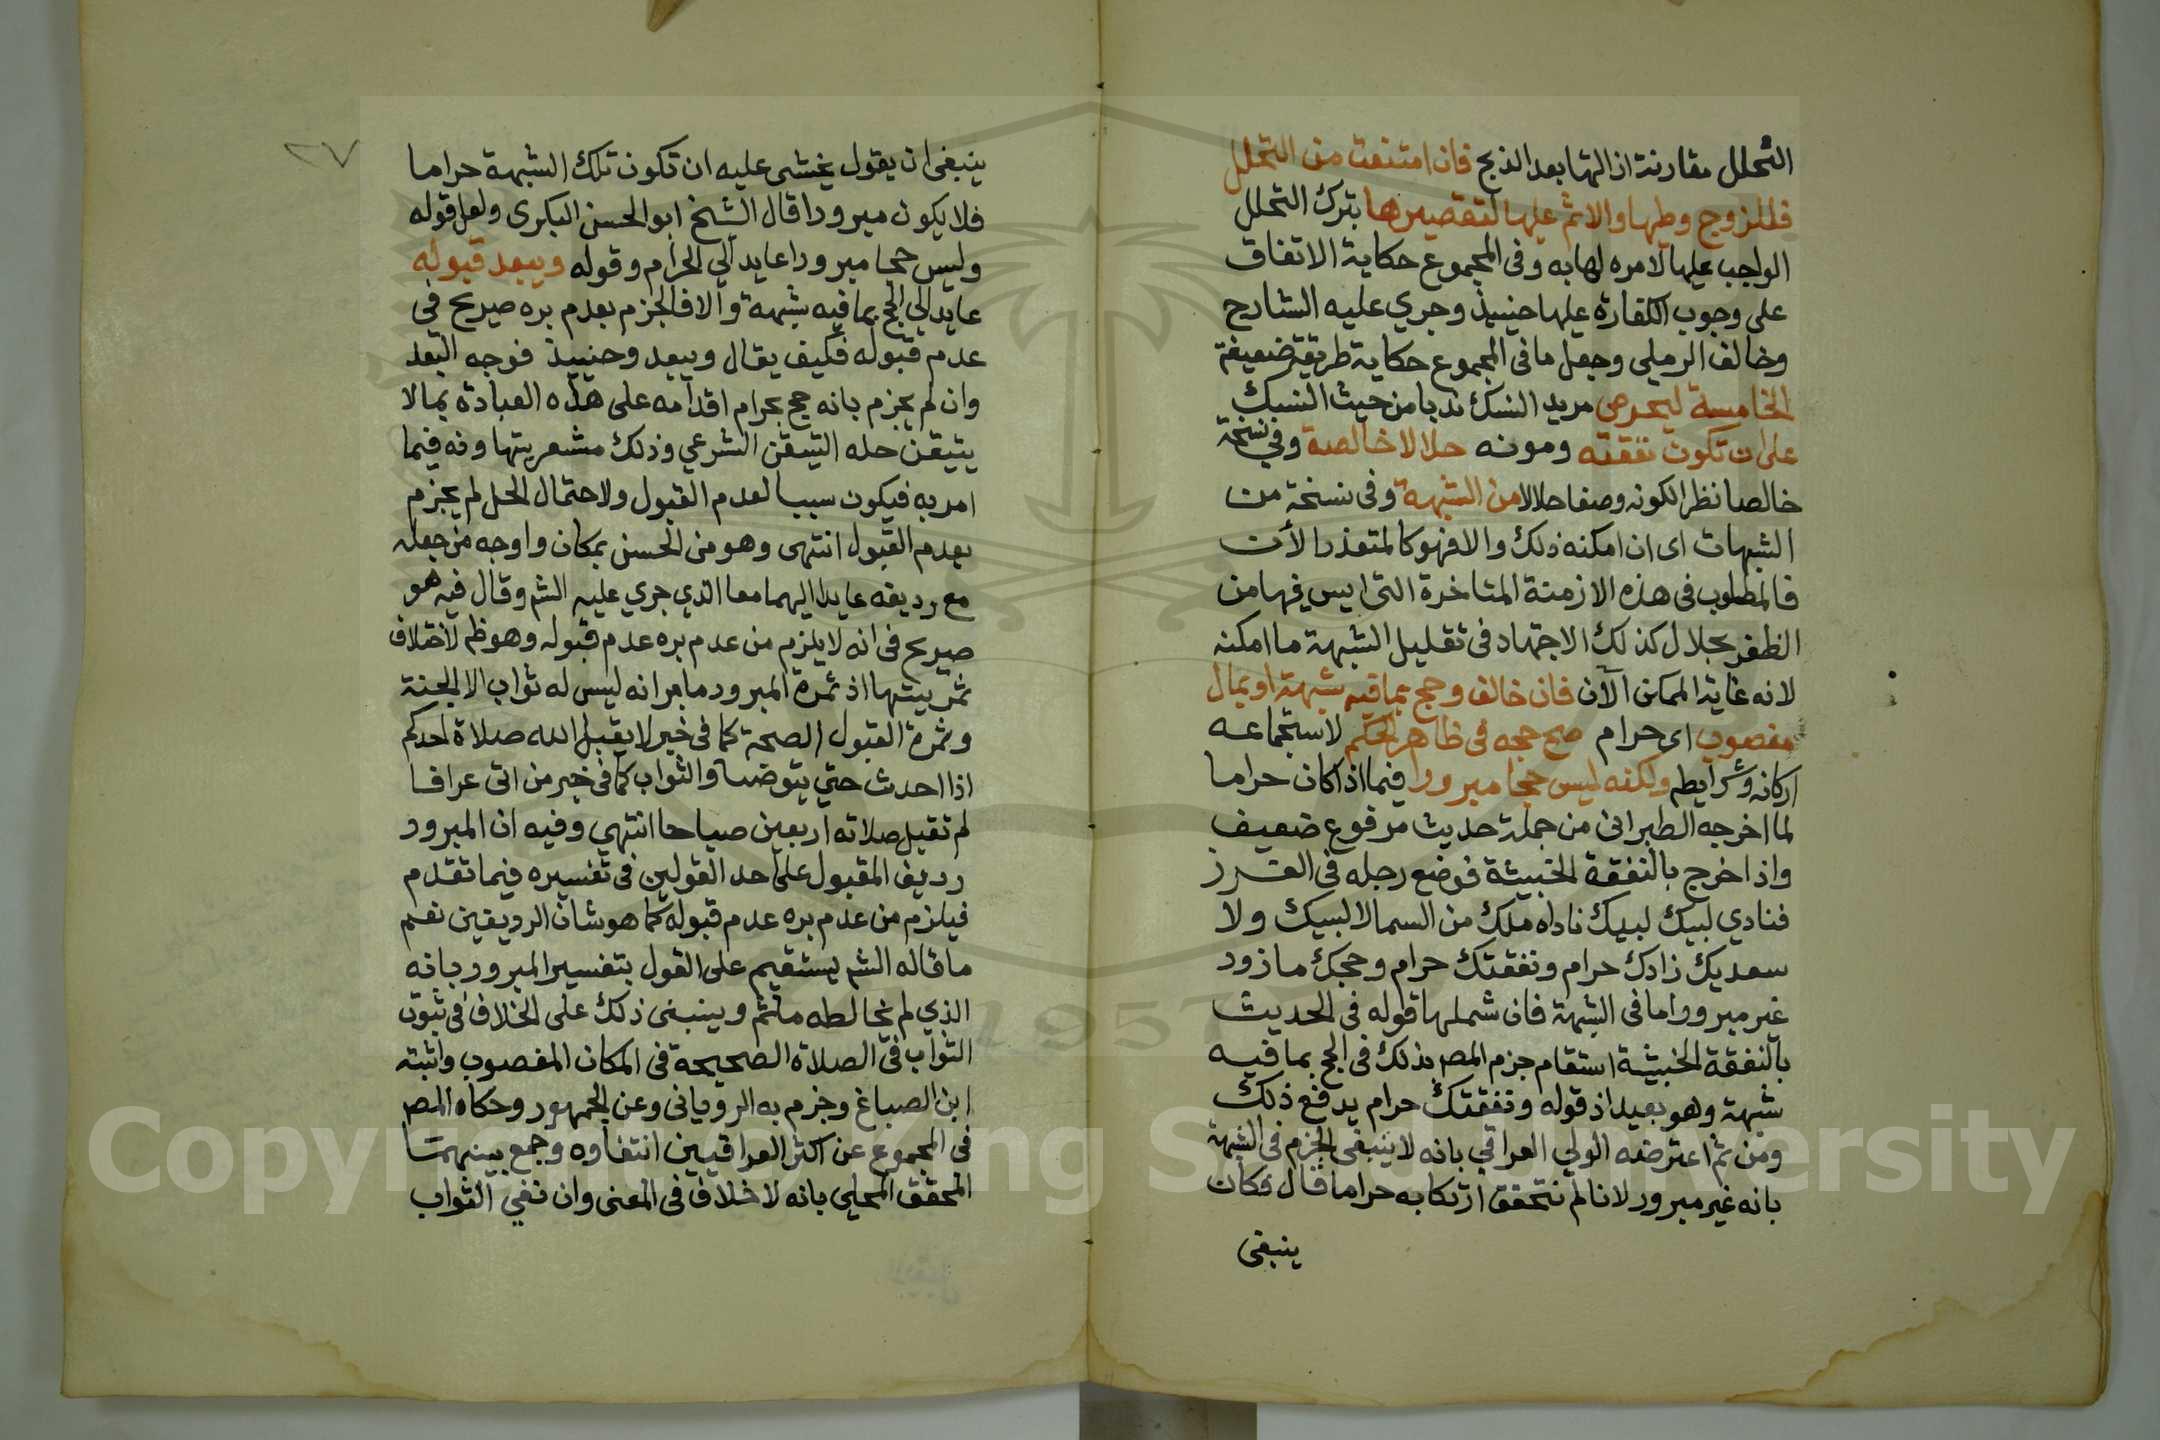 التحلل مقارنة ازالتها بعد الذبح فان امتنعت من التحلل
فللزوج وطيها والاثم عليها لتقصيرها بترك التحلل
الواجب عليها لامره لها به وفى المجموع حكاية الاتفاق
على وجوب الكفارة عليها حينيذ وجري عليه الشارح
وخالف الرملي وجعل ما فى المجموع حكاية طريقة ضعيفة
الخامسة ليحرص مريد النسك ندبا من حيث النسك
على ان تكون نفقته ومونه حلالا خالصة وفي نسخة
خالصا نظرا لكونه وصفا حلالا من الشبهة وفى نسخة من
الشبهات اى ان امكنه ذلك والا فهو كالمتعذر الأن
فالمطلوب فى هذه الازمنة المتاخرة التى ايس فيها من
الظفر بحلال كذلك الاجتهاد فى تقليل الشبهة ما امكنه
لانه غاية الممكن الآن فان خالف وحج بما فيه شبهة او بمال
مغصوب اى حرام صح حجه فى ظاهر الحكم لاستجماعه
اركانه وشرايطه ولكنه ليس حجا مبرورا فيما اذا كان حراما
لما اخرجه الطبرانى من جملة حديث مرفوع ضعيف
واذا خرج بالنفقة الخبيثة فوضع رجله فى الغرز
فنادي لبيك لبيك ناداه ملك من السما لا لبيك ولا
سعديك زادك حرام ونفقتك حرام وحجك مازور
غير مبرور واما فى الشبهة فان شملها قوله فى الحديث
بالنفقة الخبيثة استقام جزم المص بذلك فى الحج بما فيه
شبهة وهو بعيد اذ قوله ونفقتك حرام يدفع ذلك
ومن ثم اعترضه الولي العراقي بانه لا ينبغى الجزم فى الشبهة
بانه غير مبرور لانا لم نتحقق ارتكابه حراما قال فكان
ينبغى
٢٧
ينبغى ان يقول يخشى عليه ان تكون تلك الشبهة حراما
فلا يكون مبرورا قال الشيخ ابو الحسن البكرى ولعل قوله
وليس حجا مبرورا عايد الي الحرام وقوله ويبعد قبوله
عايد الي الحج بما فيه شبهة والا فالجزم بعدم بره صريح فى
عدم قبوله فكيف يقال ويبعد وحينيذ فوجه البعد
وان لم يجزم بانه حج بحرام اقدامه على هذه العبادة بما لا
يتيقن حله التيقن الشرعي وذلك مشعر بتهاونه فيما
امر به فيكون سببا لعدم القبول ولاحتمال الحل لم يجزم
بعدم القبول انتهى وهو من الحسن بمكان واوجه من جعله
مع رديفه عايدا اليهما معا الذي جري عليه الشم وقال فيه هو
صريح فى انه لا يلزم من عدم بره عدم قبوله وهو ظم لاختلاف
ثمرتيتها اذ ثمرة المبرور ما مر انه ليس له ثواب الا الجنة
وثمرة القبول الصحة كما فى خبر لا يقبل الله صلاة احدكم
اذا احدث حتي يتوضا والثواب كما فى خبر من اتى عرافا
لم تقبل صلاته اربعين صباحا انتهي وفيه ان المبرور
رديف المقبول على احد القولين فى تفسيره فيما تقدم
فيلزم من عدم بره عدم قبوله كما هو شان الرديفين نعم
ما قاله الشم يستقيم على القول بتفسير المبرور بانه
الذي لم يخالطه ماثم وينبنى ذلك على الخلاف فى ثبوت
الثواب في الصلاة الصحيحة فى المكان المغصوب واثبته
ابن الصباغ وجزم به الرويانى وعن الجمهور وحكاه المص
فى المجموع عن اكثر العراقيين انتفاوه وجمع بينهما
المحقق المحلي بانه لا خلاف فى المعنى وان نفي الثواب
Copyright © King Saud University
1957